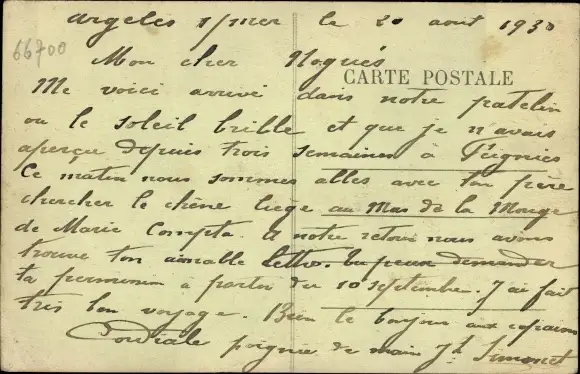 Argeles s/mer le 20 août 1930
66700
Mon cher Noguès
CARTE POSTALE
Me voici arrivé dans notre patelin
ou le soleil brille et que je n'avais
aperçu depuis trois semaines à
Ce matin nous sommes allés avec ton père
chercher le chêne liège au Mas de la Mouge
de Marie Compta. A notre retour nous avons
trouvé ton aimable lettre. Tu peux demander
ta permission a partir du 10 septembre. J'ai fait
très bon voyage. Bien le bonjour aux copains
Cordiale poignée de main Jh Simonet